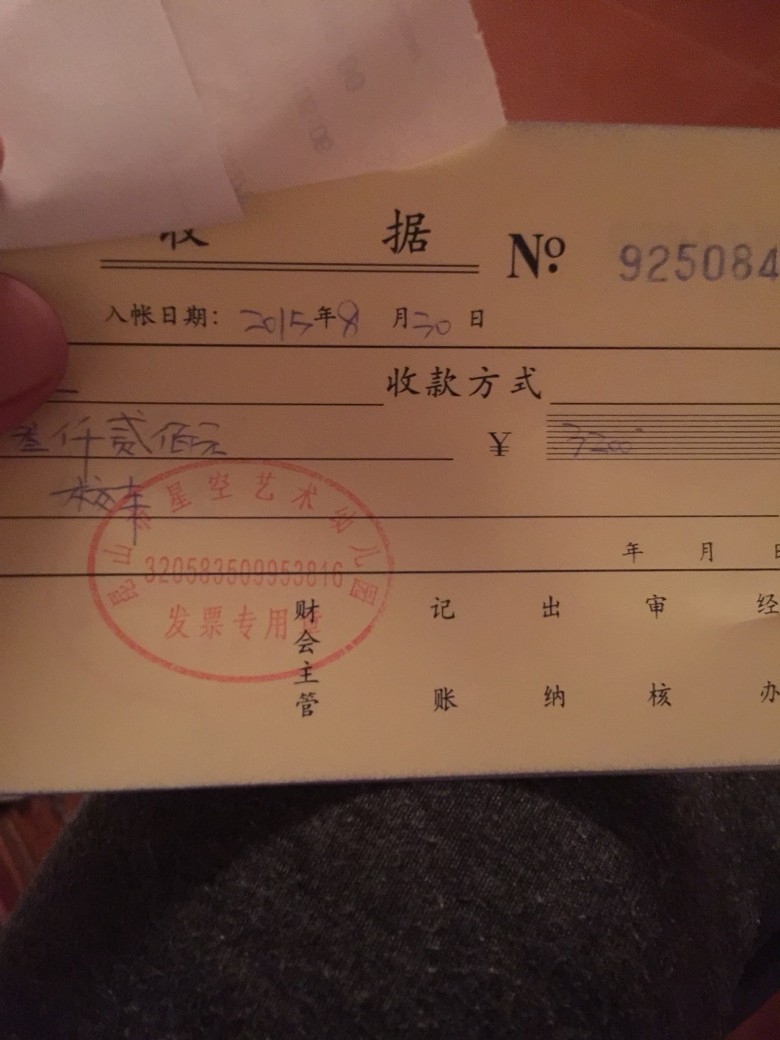 收 据 No. 925084
入帐日期: 2015年8月30日
收款方式
叁仟贰佰元 ¥ 3200
校车
昆山市星空艺术幼儿园
320583509953816
发票专用章
年 月 日
财会主管 记账 出纳 审核 经办